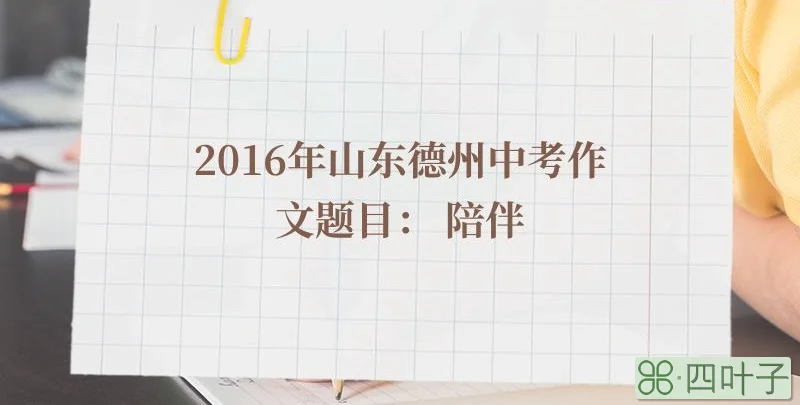 2016年山东德州中考作
文题目： 陪伴
⌘·四叶子